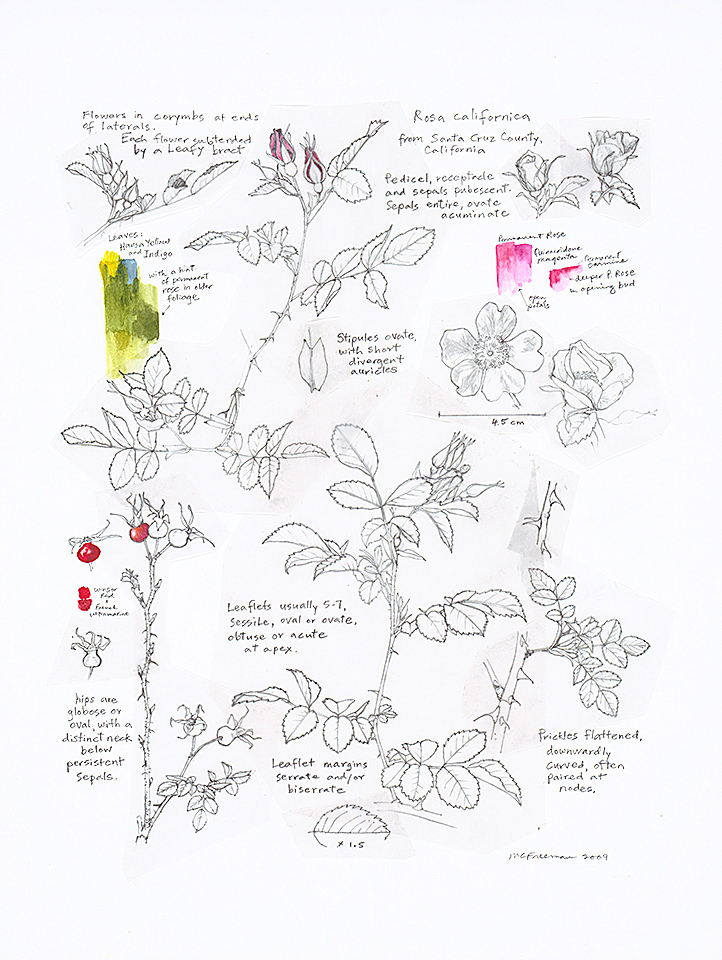 Flowers in corymbs at ends
of laterals.
Each flower subtended
by a Leafy bract
Rosa californica
from Santa Cruz County,
California
Pedicel, receptacle
and sepals pubescent.
Sepals entire, ovate
acuminate
Leaves:
Hansa Yellow
and Indigo
with a hint
of permanent
rose in older
foliage
Permanent Rose
Quinacridone
magenta
Permanent
Carmine
deeper P. Rose
in opening bud
open
petals
Stipules ovate,
with short
divergent
auricles
4.5 cm
Winsor
Red
+
French
ultramarine
Leaflets usually 5-7,
sessile, oval or ovate,
obtuse or acute
at apex.
hips are
globose or
oval, with a
distinct neck
below
persistent
sepals.
Leaflet margins
serrate and/or
biserrate
x 1.5
Prickles flattened,
downwardly
curved, often
paired at
nodes.
MCFreeman 2009